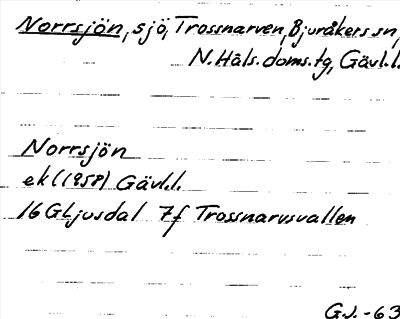 Norrsjön, sjö, Trossnarven, Bjuråkers sn,
N. Häls. doms. tg, Gävl.l.
Norrsjön
ek (1958) Gävl.l.
16G Ljusdal 7f Trossnarvsvallen
G.J. -63